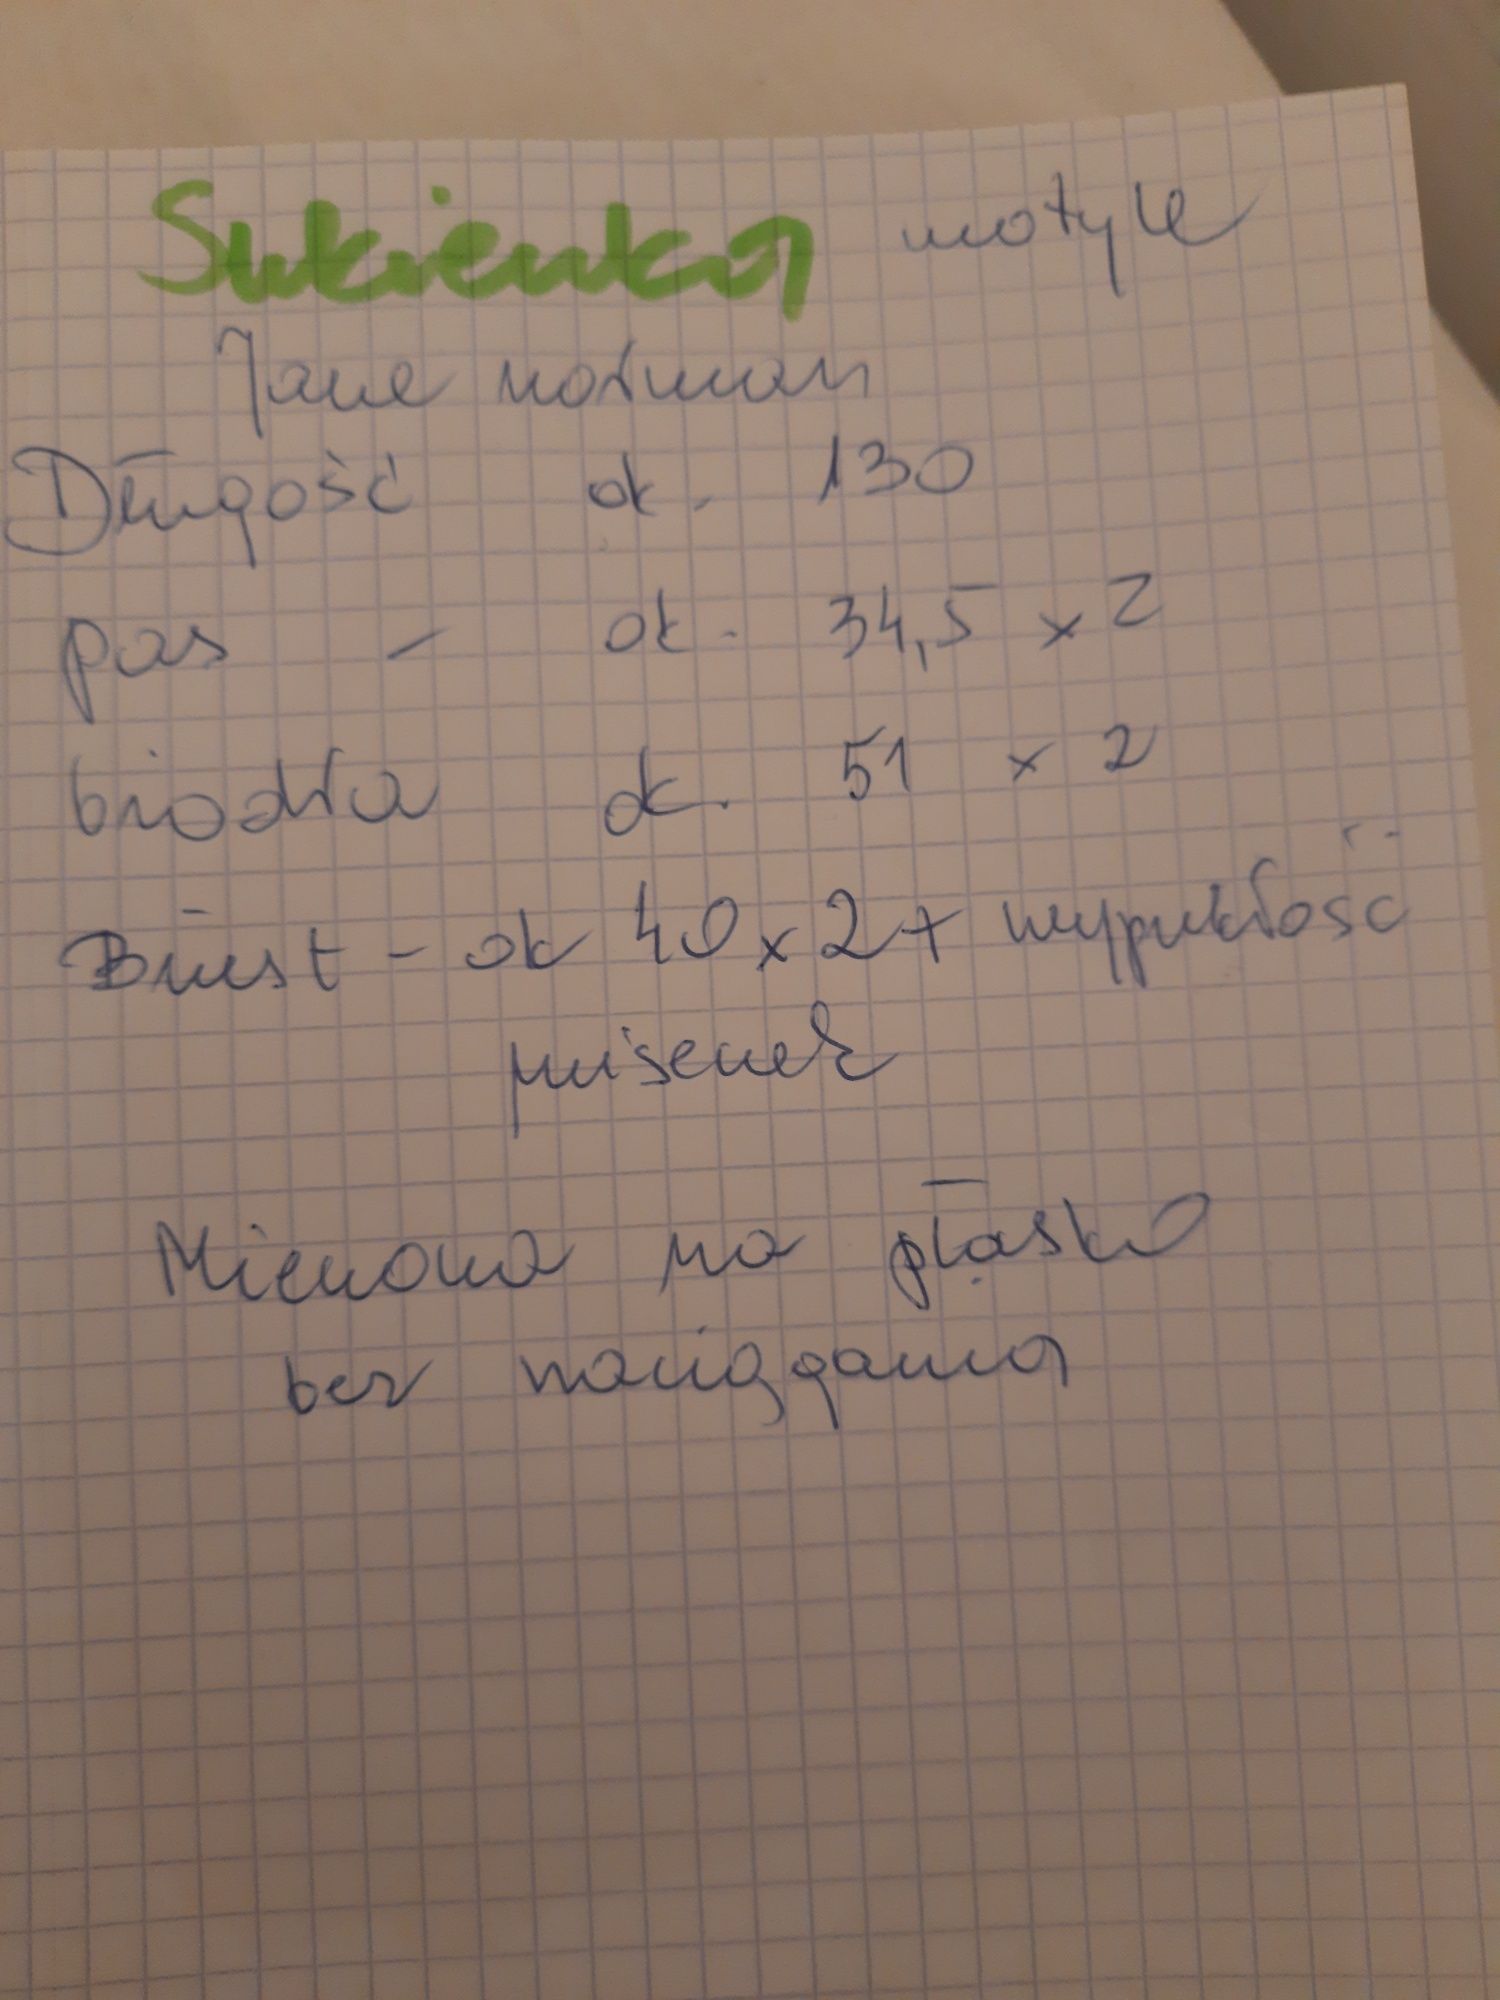 Sukienka motyle
Jane norman
Długość ok. 130
pas - ok. 34,5 x 2
biodra ok. 51 x 2
Biust - ok 40 x 2 + wypukłość
miseczek
Mierzona na płasko
bez naciągania